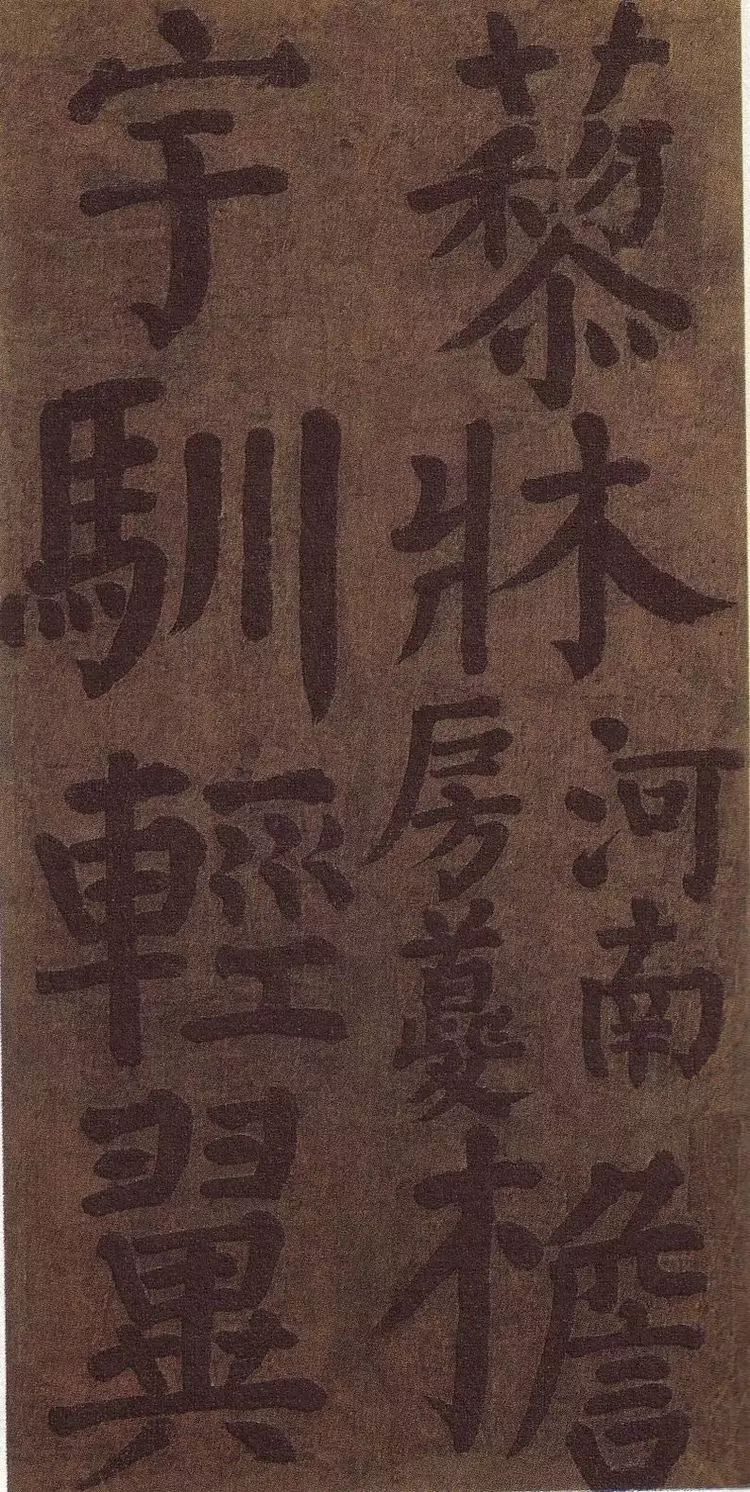 藜牀河南房夔檐
宇馴輕翼